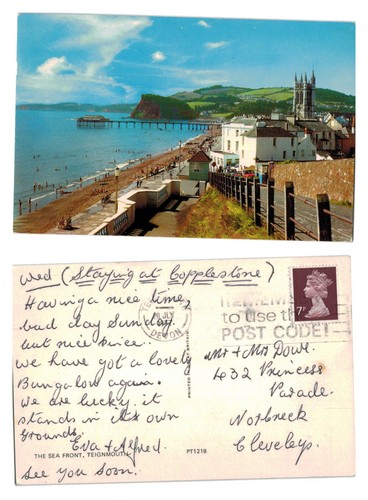 Wed (Staying at Copplestone)
Having a nice time,
bad day Sunday.
but nice since.
we have got a lovely
Bungalow again.
we are lucky it
stands in its own
Grounds.
Eva & Alfred.
See you soon.
THE SEA FRONT, TEIGNMOUTH
PT1218
JLY
DEVON
to use the
POST CODE!
7P
Mr & Mrs Dowe.
432 Princess
Parade.
Norbreck
Cleveleys.